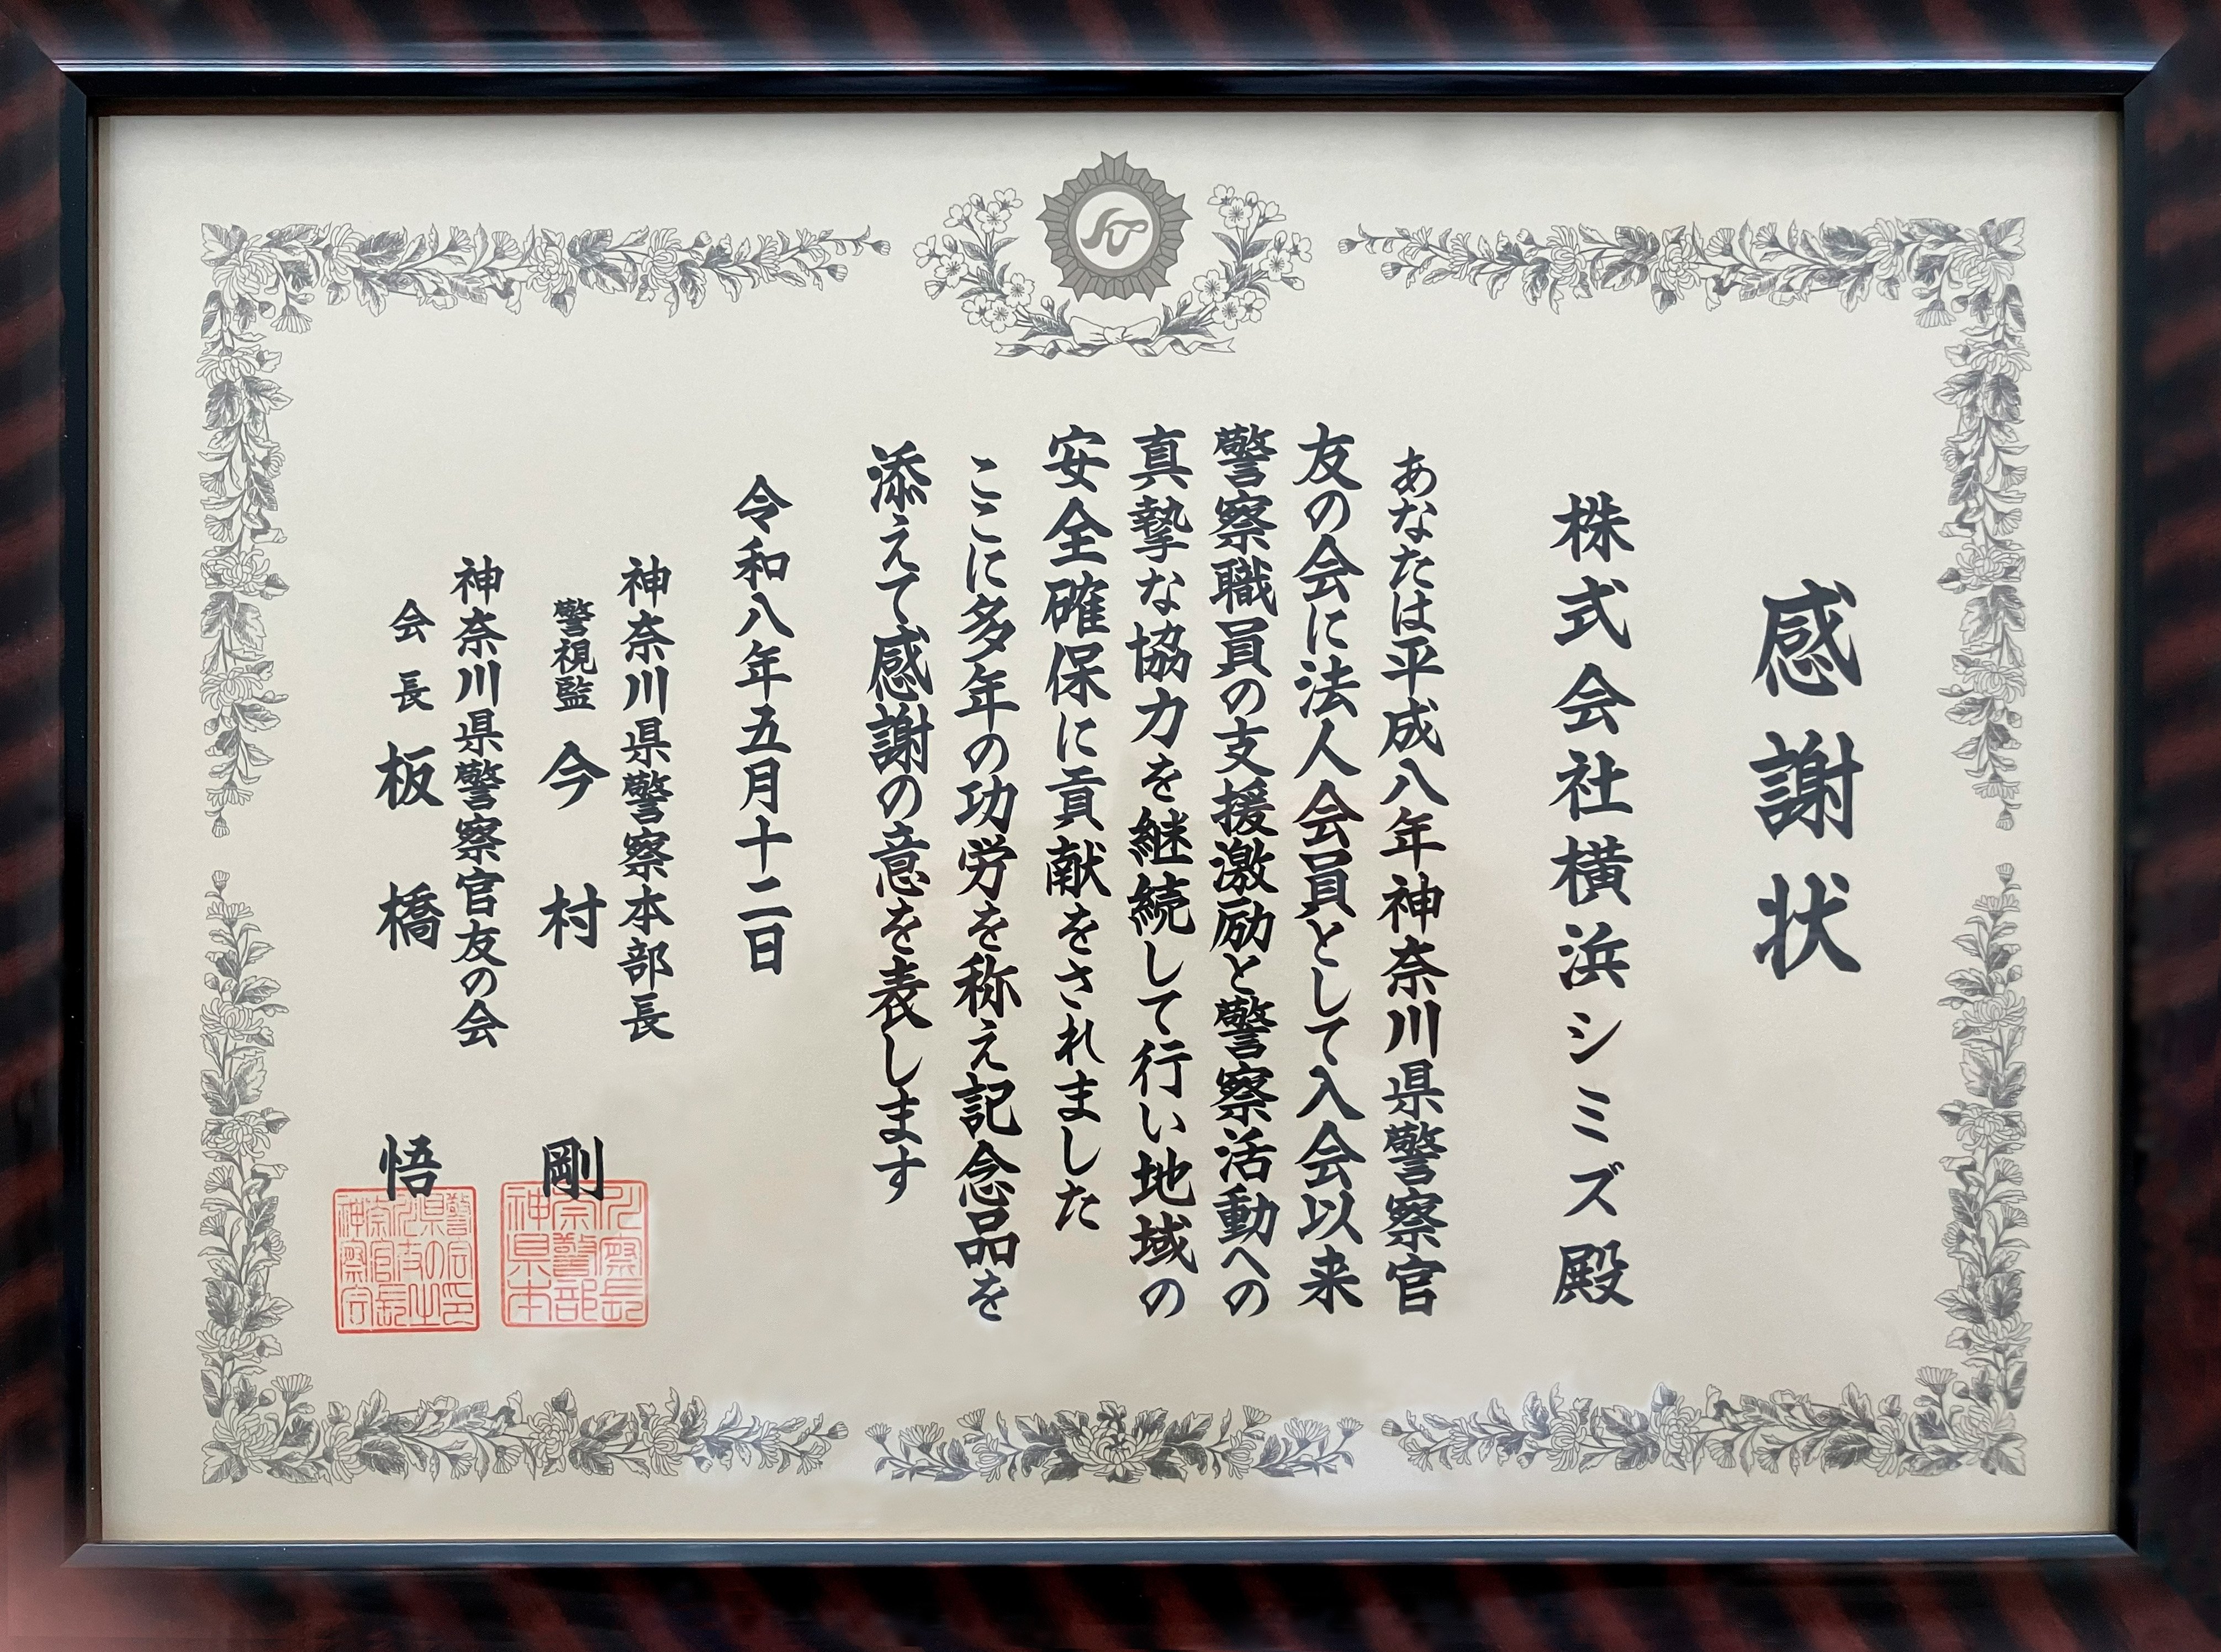 感謝状
株式会社横浜シミズ殿
あなたは平成八年神奈川県警察官
友の会に法人会員として入会以来
警察職員の支援激励と警察活動への
真摯な協力を継続して行い地域の
安全確保に貢献をされました
ここに多年の功労を称え記念品を
添えて感謝の意を表します
令和八年五月十二日
神奈川県警察本部長
警視監 今村 剛
神奈川県警察官友の会
会長 板橋 悟
神奈川県警察本部長
神奈川県警察官友の会会長之印